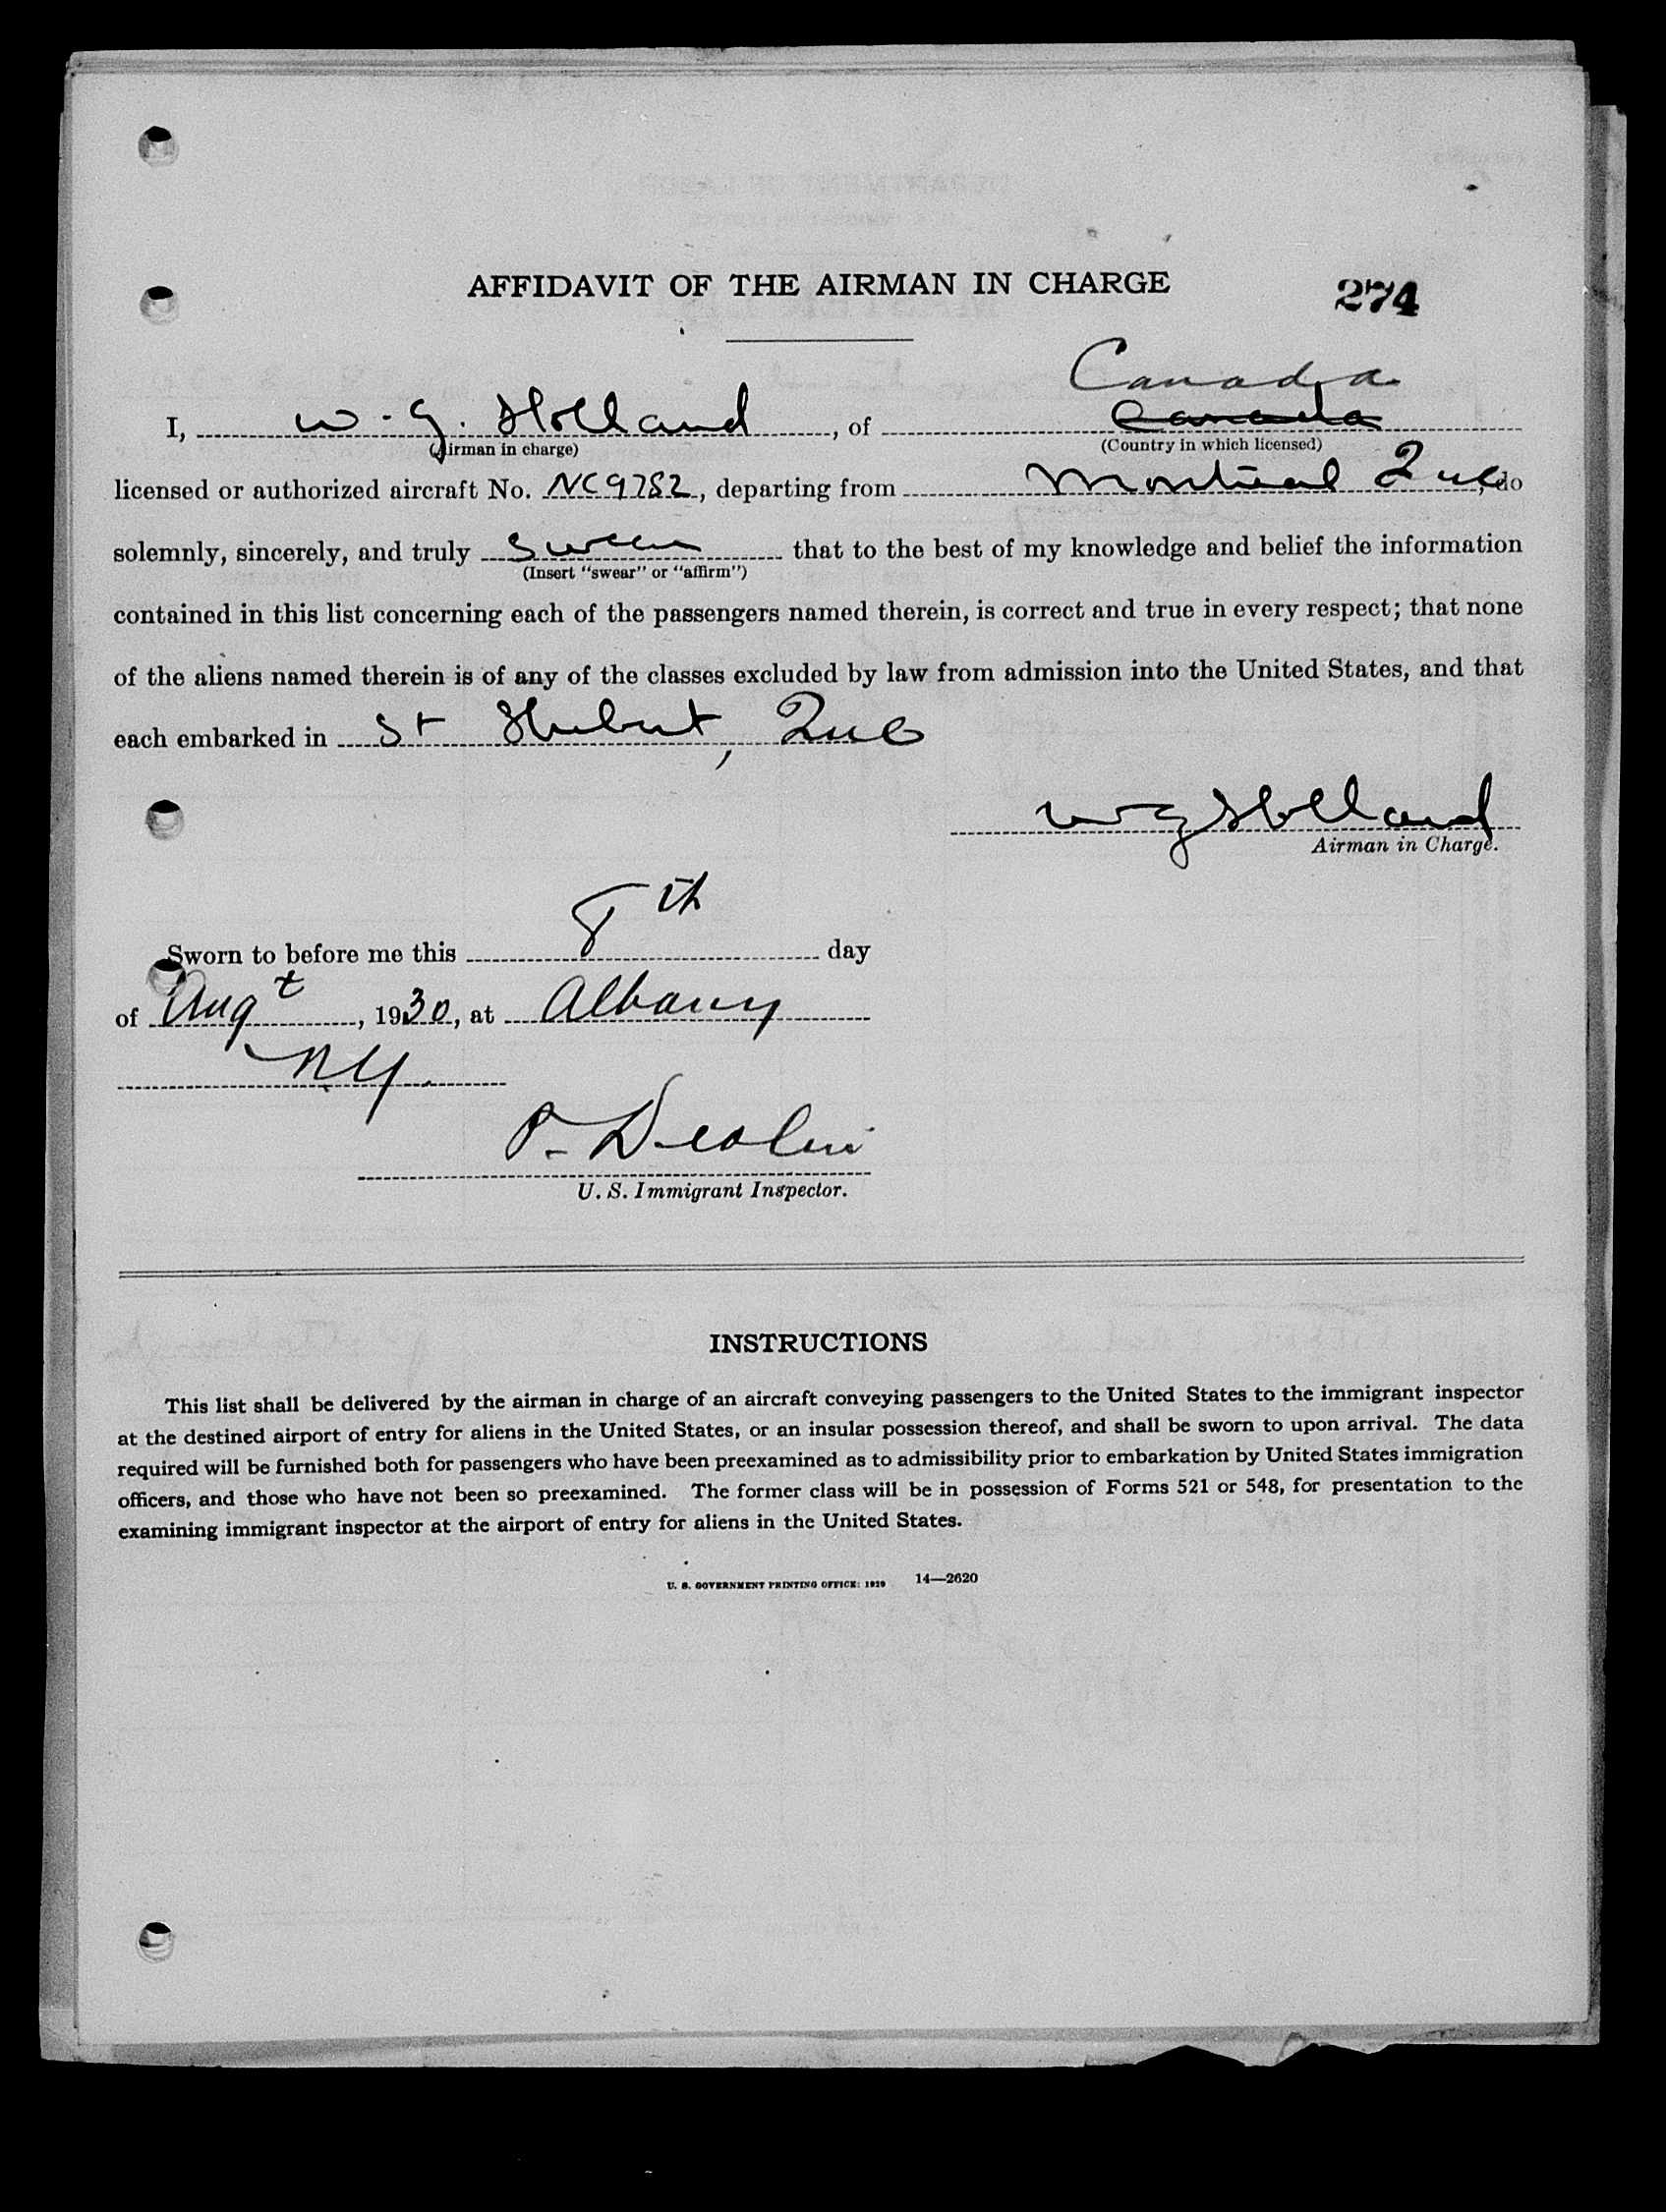 AFFIDAVIT OF THE AIRMAN IN CHARGE
274
Canada
I, W. G. Holland, of Canada
(Airman in charge) (Country in which licensed)
licensed or authorized aircraft No. NC9782, departing from Montreal Que, do
solemnly, sincerely, and truly swear that to the best of my knowledge and belief the information
(Insert "swear" or "affirm")
contained in this list concerning each of the passengers named therein, is correct and true in every respect; that none
of the aliens named therein is of any of the classes excluded by law from admission into the United States, and that
each embarked in St Hubert, Que
W G Holland
Airman in Charge.
Sworn to before me this 8th day
of Augt, 1930, at Albany
NY.
P. Devlin
U. S. Immigrant Inspector.
INSTRUCTIONS
This list shall be delivered by the airman in charge of an aircraft conveying passengers to the United States to the immigrant inspector
at the destined airport of entry for aliens in the United States, or an insular possession thereof, and shall be sworn to upon arrival. The data
required will be furnished both for passengers who have been preexamined as to admissibility prior to embarkation by United States immigration
officers, and those who have not been so preexamined. The former class will be in possession of Forms 521 or 548, for presentation to the
examining immigrant inspector at the airport of entry for aliens in the United States.
U. S. GOVERNMENT PRINTING OFFICE: 1929 14—2620